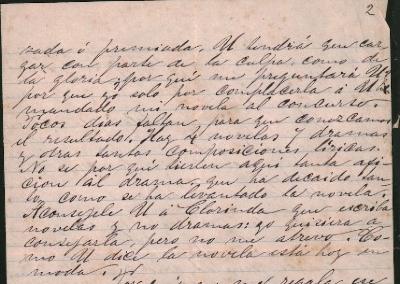 2
zada ó premiada. U tendrá que car
gar con parte de la culpa, como de
la gloria; ¿por qué me preguntará U?
por que yo solo por complacerla á U he
mandado mi novela al concurso.
Pocos dias faltan, para que conozcamos
el resultado. Hay 2 novelas 7 dramas
y otras tantas composiciones liricas.
No se por qué tienen aqui tanta afi
cion al drama, que ha decaido tan
to, como se ha levantado la novela.
Aconsejele U á Clorinda que escriba
novelas y no dramas: yo quisiera a
consejarla, pero no me atrevo. Co-
mo U dice la novela está hoy en
moda.
regalo en